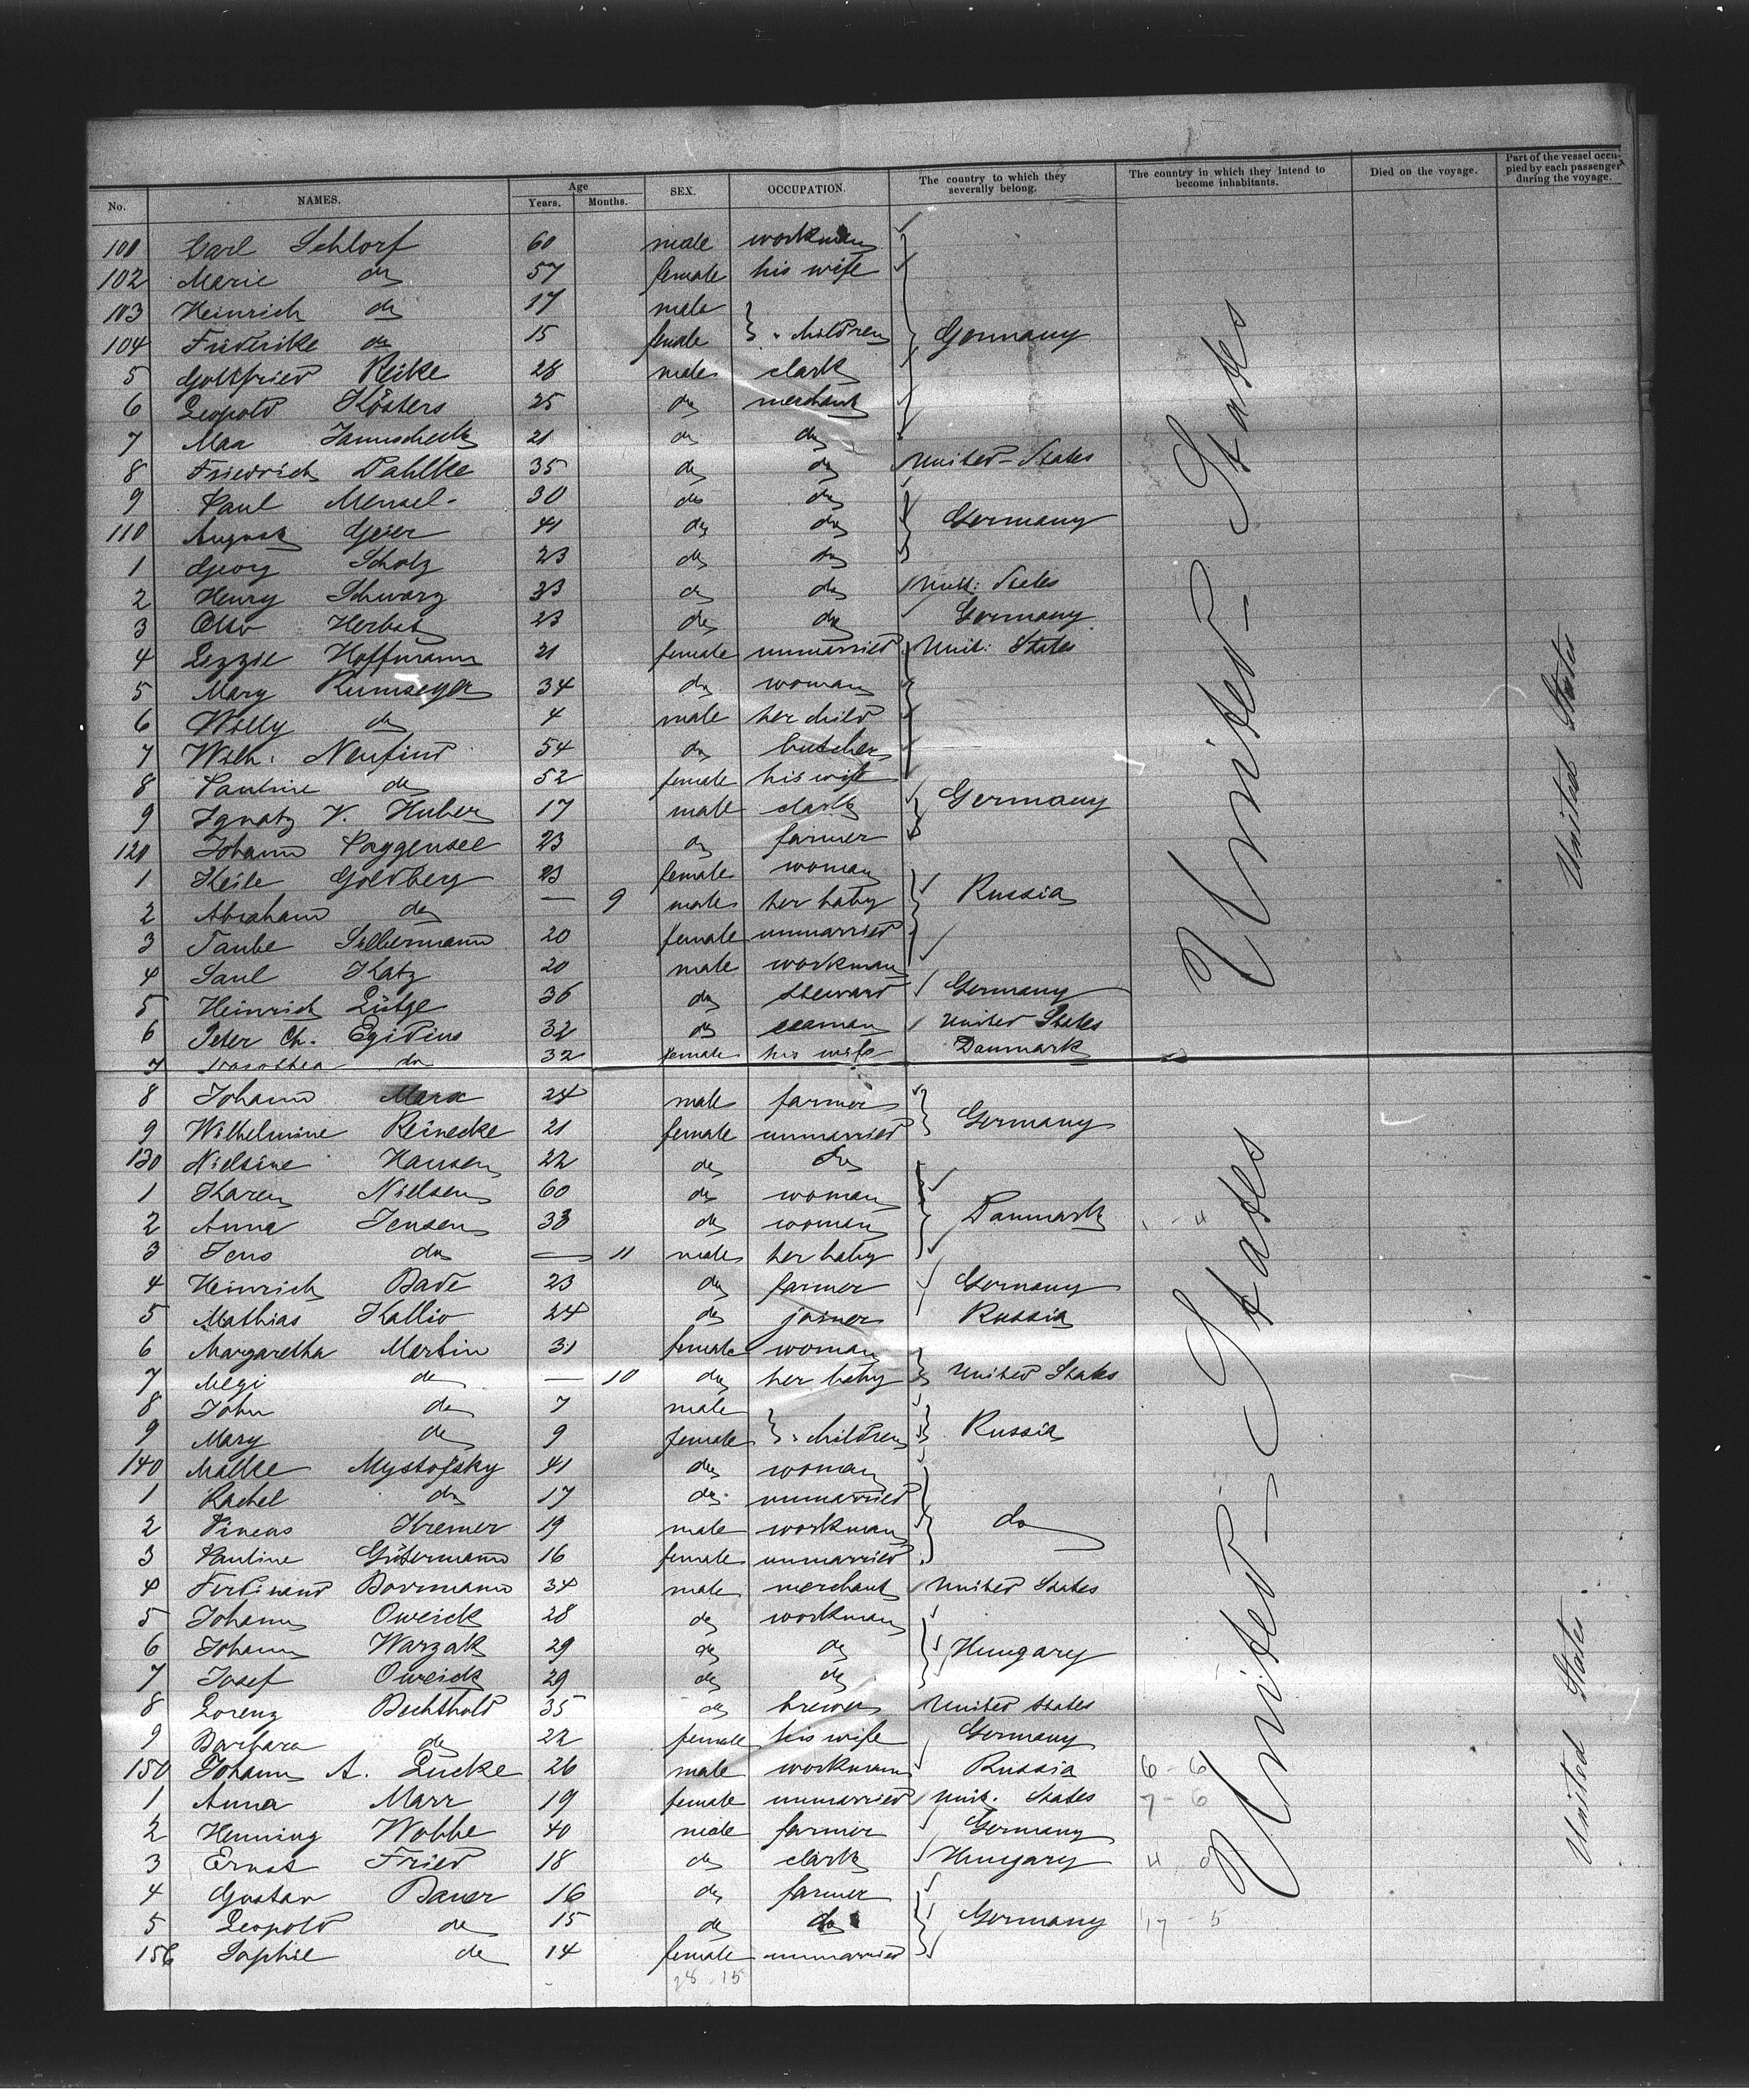 No. NAMES. Age Years. Months. SEX. OCCUPATION. The country to which they severally belong. The country in which they intend to become inhabitants. Died on the voyage. Part of the vessel occupied by each passenger during the voyage.
101 Carl Schlorf 60 male workman
102 Marie do 57 female his wife
103 Heinrich do 17 male
104 Friderike do 15 female } " children Germany
5 Gottfried Reike 28 male clark
6 Leopold Kösters 25 do merchant
7 Max 21 do do
8 Friedrich Dahlke 35 do do United-States
9 Paul Mensel 30 do do
110 August Geier 41 do do Germany
1 Georg Scholz 23 do do
2 Henry Schwarz 33 do do Unit: States
3 Otto Herbst 23 do do Germany
4 Lizzie Hoffmann 21 female unmarried Unit: States
5 Mary 34 do woman
6 Willy do 4 male her child
7 Wilh. Neufind 54 do butcher
8 Pauline do 52 female his wife
9 Ignatz V. Huber 17 male clark Germany
120 Johann Poggensee 23 do farmer
1 Keile Goldberg 23 female woman
2 Abraham do — 9 male her baby Russia
3 Taube Silbermann 20 female unmarried
4 Saul Katz 20 male workman
5 Heinrich Lütge 36 do steward Germany
6 Peter Ch. Egidius 32 do seaman United States
7 Dorothea do 32 female his wife Danmark
United States
United States
8 Johann Marx 24 male farmer
9 Wilhelmine Reinecke 21 female unmarried Germany
130 Nielsine Hansen 22 do do
1 Karen Nielsen 60 do woman
2 Anna Jensen 33 do woman Danmark 1 - 4
3 Jens do — 11 male her baby
4 Heinrich Bade 23 do farmer Germany
5 Mathias Kallio 24 do joiner Russia
6 Margaretha Martin 31 female woman
7 Megi do — 10 do her baby United States
8 John do 7 male
9 Mary do 9 female } " children Russia
140 Malke Mystofsky 41 do woman
1 Rachel do 17 do unmarried
2 Pineus Kremer 19 male workman do
3 Pauline Gütermann 16 female unmarried
4 Ferdinand Borrmann 34 male merchant United States
5 Johann Oweick 28 do workman
6 Johann Warzak 29 do do Hungary
7 Josef Oweick 29 do do
8 Lorenz Bechthold 35 do brewer United states
9 Barbara do 22 female his wife Germany
150 Johann A. Lucke 26 male workman Russia 6 - 6
1 Anna Marr 19 female unmarried Unit. States 7 - 6
2 Henning Wobbe 40 male farmer Germany
3 Ernst Fried 18 do clark Hungary 4 0
4 Gustav Bauer 16 do farmer
5 Leopold do 15 do do Germany 17 - 5
156 Sophie do 14 female unmarried
28 - 15
United States
United States